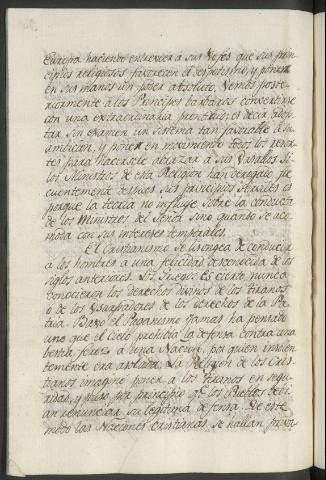 Europa haciendo entreveer à sus Gefes que sus prin-
cipios religiosos favorecen el despotismo, y ponen
en sus manos un poder absoluto. Vemos poste-
riormente à los Principes barbaros convertirse
con una extraordinaria prontitud; es decir, adop-
tar sin examen un sistema tan favorable à su
ambicion, y poner en movimiento todos los resor-
tes para hacersele abrazar à sus Vasallos. Si
los Ministros de esta Religion han derogado fre-
cuentemente despues sus principios serviles es
porque la teoria no influye sobre la conducta
de los Ministros del Señor sino quando se aco-
moda con sus intereses temporales.
El Cristianismo se lisongea de conducir
à los hombres à una felicidad desconocida de los
siglos anteriores. Los Griegos es cierto nunca
conocieron los derechos divinos de los tiranos
ò de los Usurpadores de los derechos de la Pa-
tria. Bajo el Paganismo jamas ha pensado
uno que el Cielo prohibia la defensa contra una
bestia feroz à una Nacion, por quien insolen-
temente era asolada. La Religion de los Cris-
tianos imaginò poner à los tiranos en segu-
ridad, y puso por principio qe. los Pueblos debi-
an renunciar su legitima defensa. De este
modo las Naciones cristianas se hallan priva-